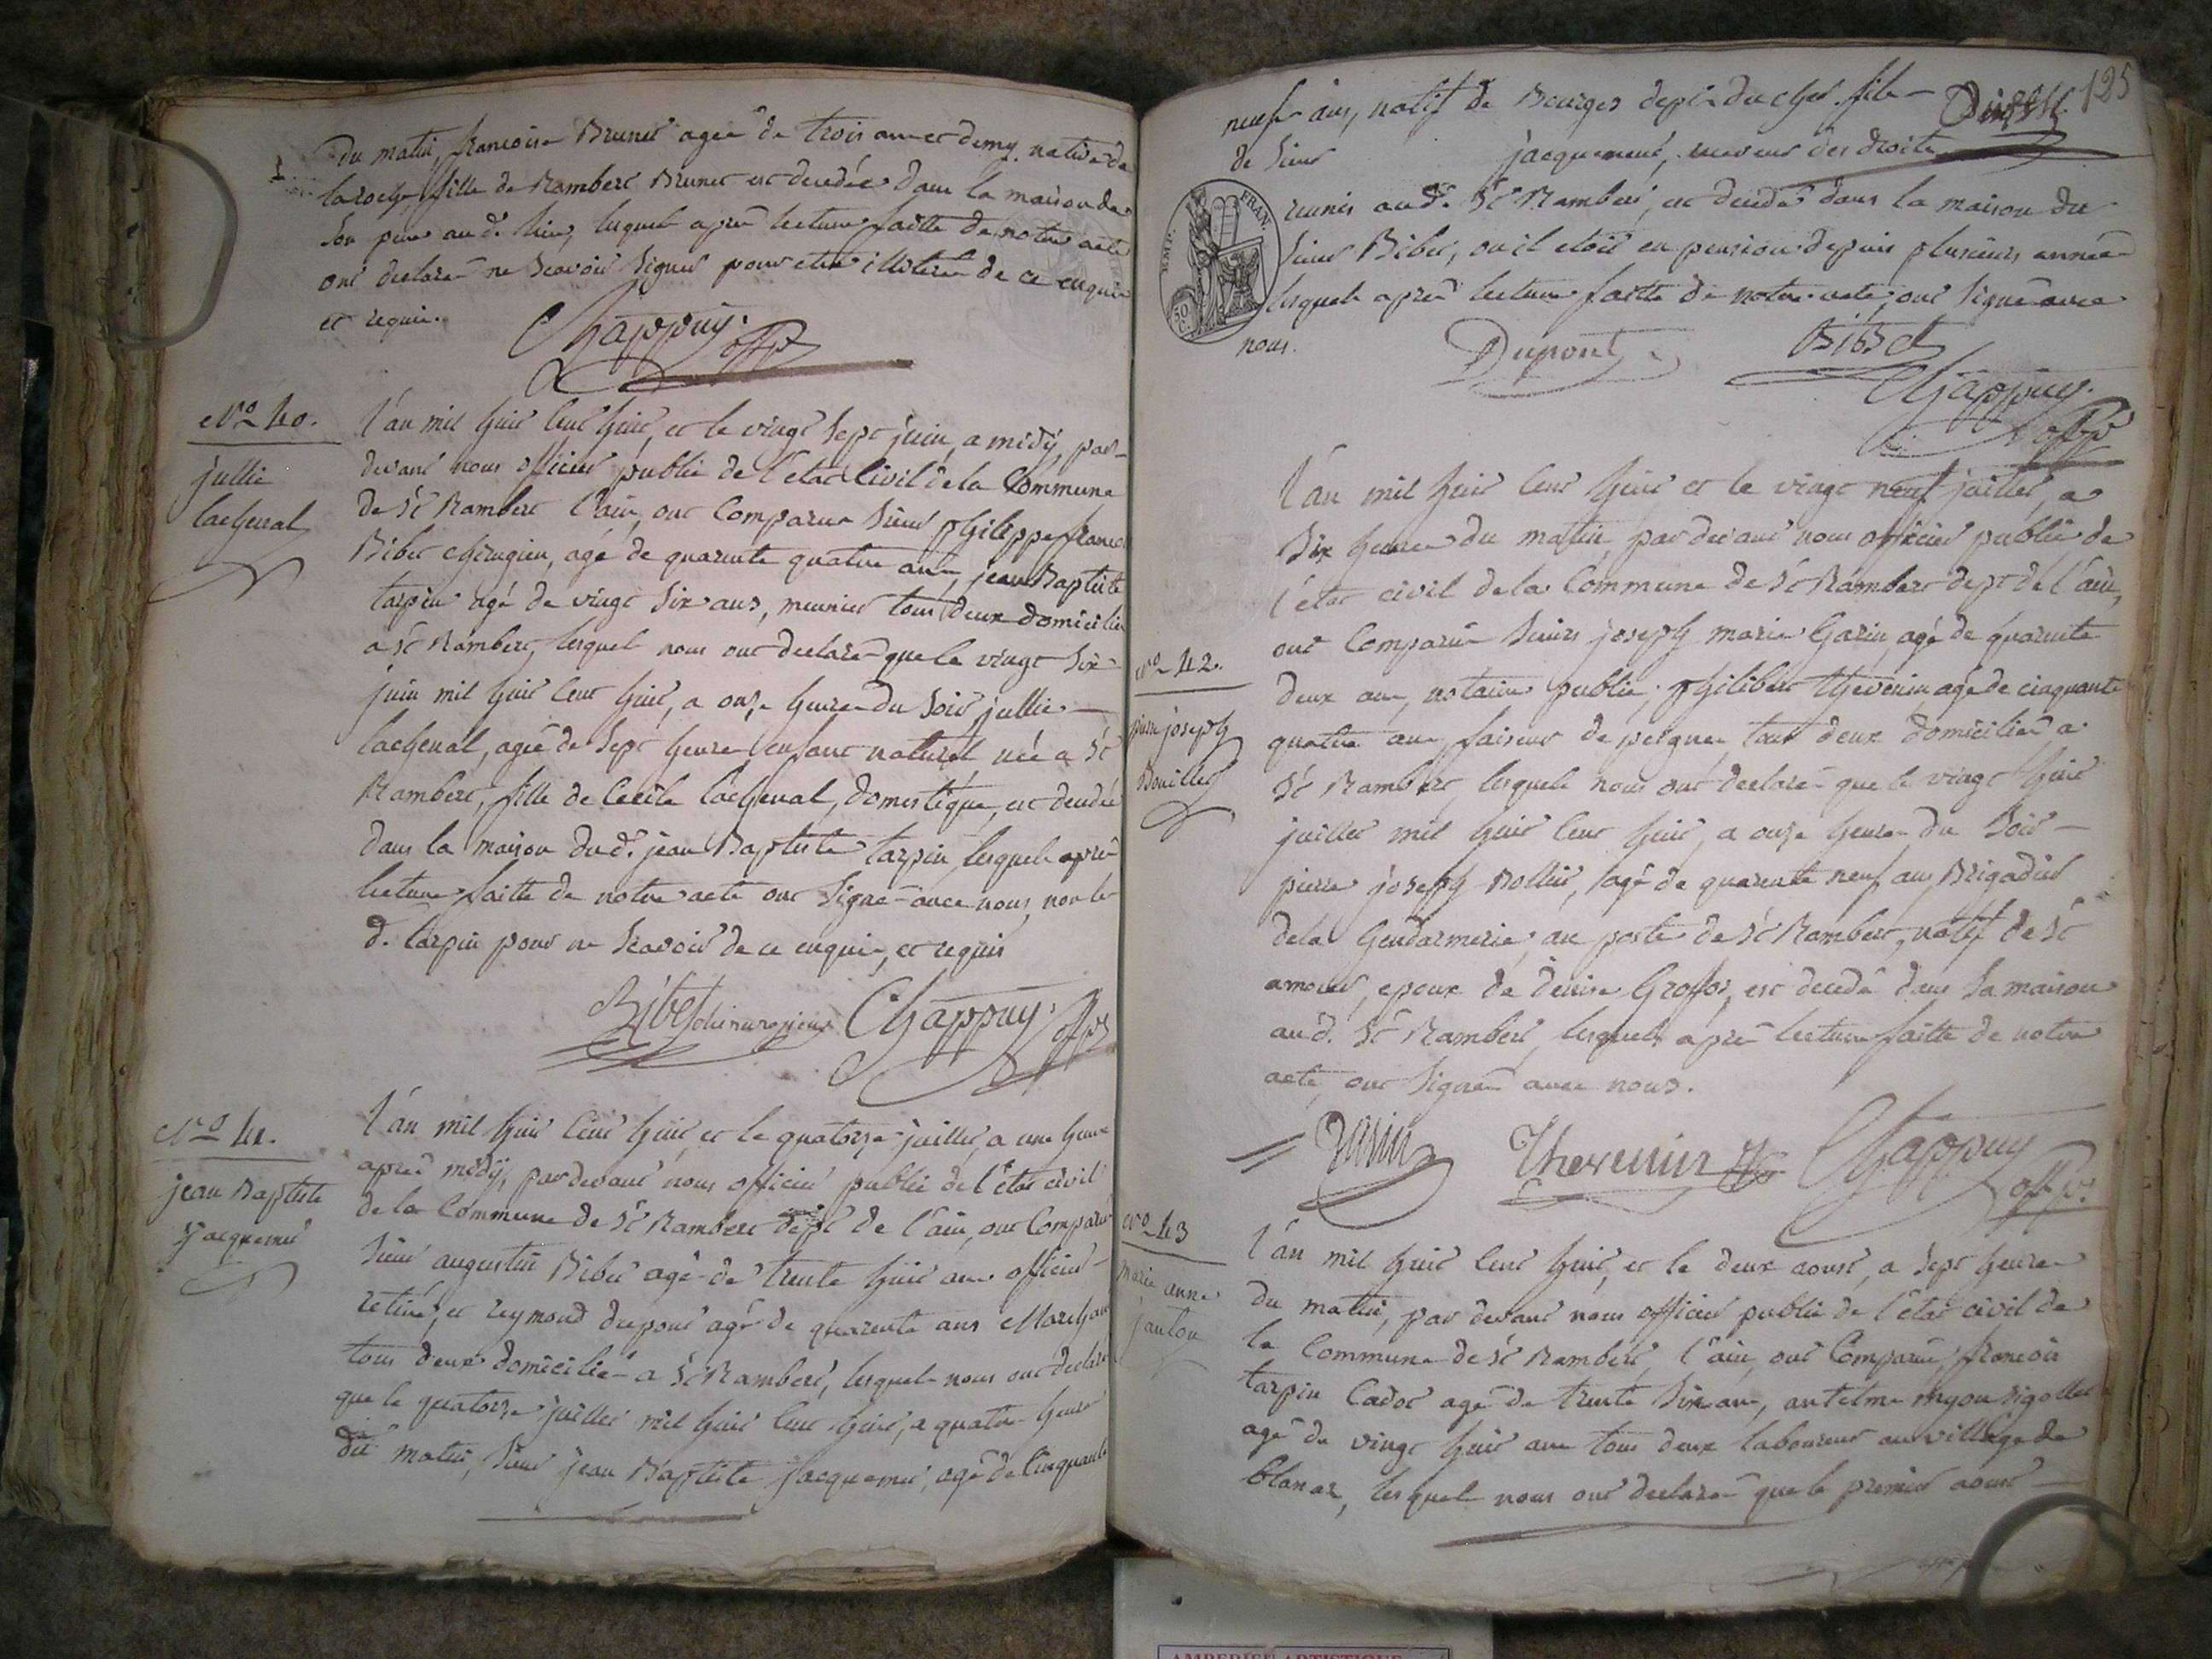 Du matin, francoise Brunet agée de trois ans et demy, native de
laroche, fille de Rambert Brunet est decedée dans la maison de
Son pere au d. lieu, lesquels apres lecture faitte de notre acte
ont declaré ne Scavoir Signer pour etre illiteré de ce enquis
et requis.
Chappuy. offp
No 40.
jullie
lachenal
l'an mil huit cent huit, et le vingt Sept juin, a midÿ, par-
devant nous officier public de l'etat Civil de la Commune
de St Rambert l'ain, ont Comparu Sieur philippe francois
Bibet chirugien, agé de quarente quatre ans, jean Baptiste
tarpin agé de vingt Six ans, meunier tous deux domicilié
a St Rambert, lesquels nous ont declaré que le vingt Six
juin mil huit cent huit, a onze heures du Soir jullie
lachenal, agée de Sept heures enfant naturel née a St
Rambert, fille de Cecile lachenal, domestique, est decedée
dans la maison du d. jean Baptiste tarpin, lesquels apres
lecture faitte de notre acte ont Signé avec nous, non le
d. tarpin pour ne Scavoir de ce enquis, et requis
Bibet chirurgien Chappuy. offp
No 41.
jean Baptiste
jacquemet
l'an mil huit cent huit, et le quatorze juillet, a une heure
apres midÿ, pardevant nous officier public de l'etat civil
de la Commune de St Rambert dept de l'ain, ont Comparu
Sieur augustin Bibet agé de trente huit ans officier
retiré, et reymond dupont agé de quarente ans Marchand
tous deux domicilié a St Rambert, lesquels nous ont declaré
que le quatorze juillet mil huit cent huit, a quatre heures
du matin, Sieur jean Baptiste jacquemet, agé de Cinquante
125
neuf ans, natif de Bourges dept du cher fils
de Sieur jacquemet, receveur des droits
reunis au d. St Rambert, est decedé dans la maison du
Sieur Bibet, ou il etoit en pension depuis plusieurs années
lesquels apres lecture faitte de notre acte, ont Signé avec
nous.
EMP. FRAN.
50 C.
Dupont Bibet
Chappuy.
offp
No 42.
pierre joseph
Bouillet
l'an mil huit cent huit et le vingt neuf juillet, a
Six heures du matin, par devant nous officier public de
l'etat civil de la Commune de St Rambert dept de l'ain,
ont Comparu Sieurs joseph marie Garin, agé de quarente
deux ans, notaire public; philibert thevenin, agé de cinquante
quatre ans faiseur de peignes tous deux domicilié a
St Rambert, lesquels nous ont declaré que le vingt huit
juillet mil huit cent huit, a onze heures du Soir
pierre joseph Rollier, agé de quarente neuf ans Brigadier
de la Gendarmerie, au poste de St Rambert, natif de St
amour, epoux de denise Groffoz, est decedé dans Sa maison
au d. St Rambert, lesquels apres lecture faitte de notre
acte, ont Signé avec nous.
Garin Thevenin Chappuy
offp.
No 43
marie anne
janton
l'an mil huit cent huit, et le deux aoust, a Sept heures
du matin, par devant nous officier public de l'etat civil de
la Commune de St Rambert, l'ain, ont Comparu, francois
tarpin Cadet agé de trente Six ans, antelme myon rigollet
agé de vingt huit ans tous deux laboureur au village de
blanaz, lesquels nous ont declaré que le premier aoust